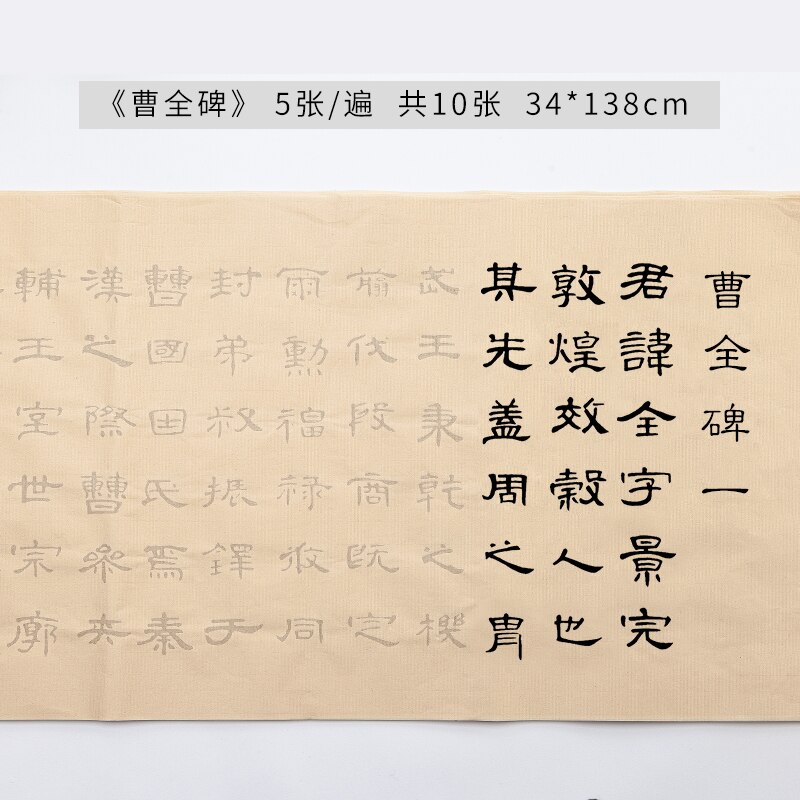 《曹全碑》 5张/遍 共10张 34*138cm
曹全碑一
君諱全字景完
敦煌效穀人也
其先盖周之胄
武王秉乾之機
翦伐殷商既定
爾勲福禄攸同
封弟叔振鐸于
曹國因氏焉秦
漢之際曹參夾
輔王室世宗廓